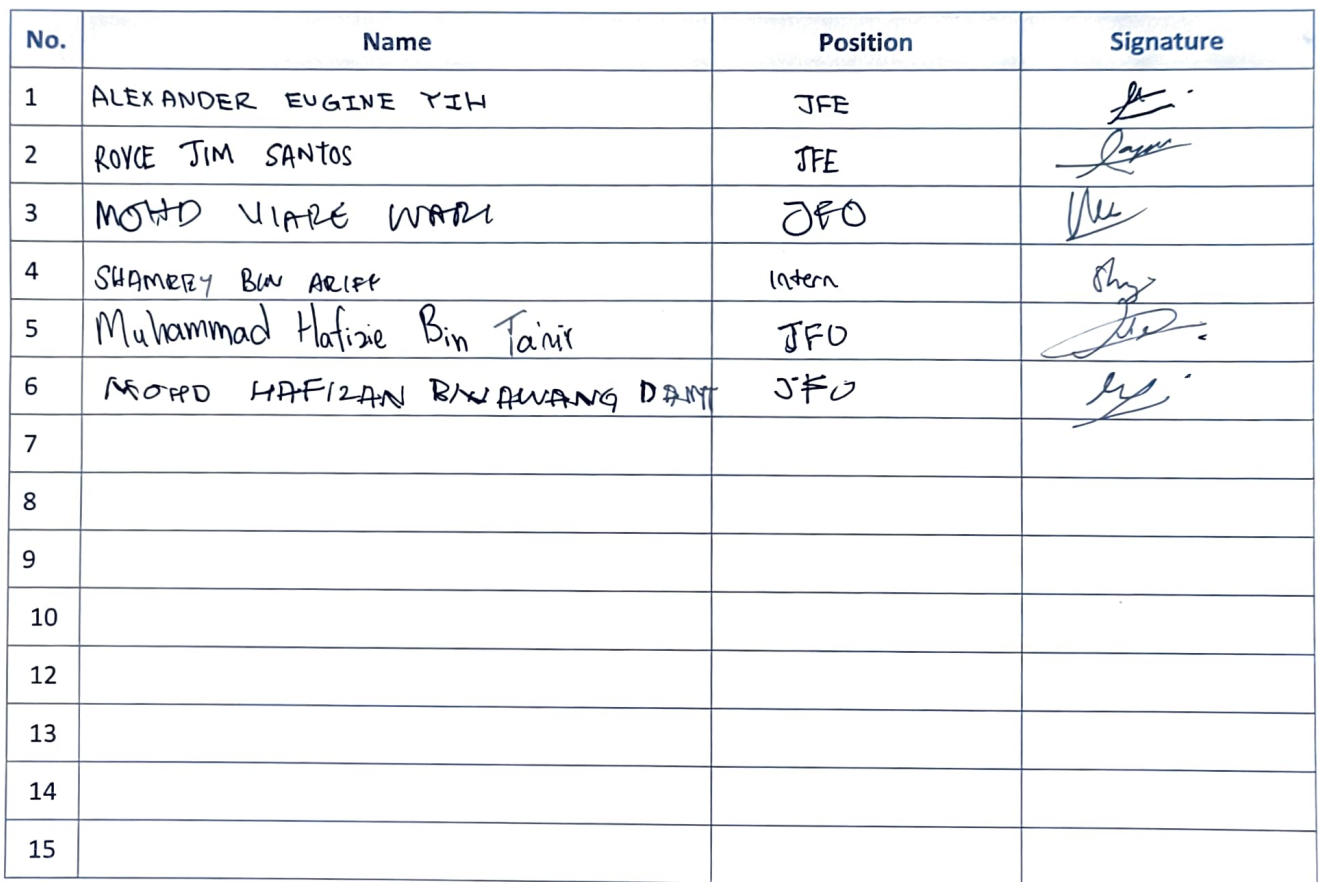 No. Name Position Signature
1 ALEXANDER EUGINE YIH JFE
2 ROYCE JIM SANTOS JFE
3 MOHD JFO
4 BIN ARIFF Intern
5 Muhammad Hafizie Bin JFO
6 MOHD HAFIZAN BIN AWANG JFO
7
8
9
10
12
13
14
15